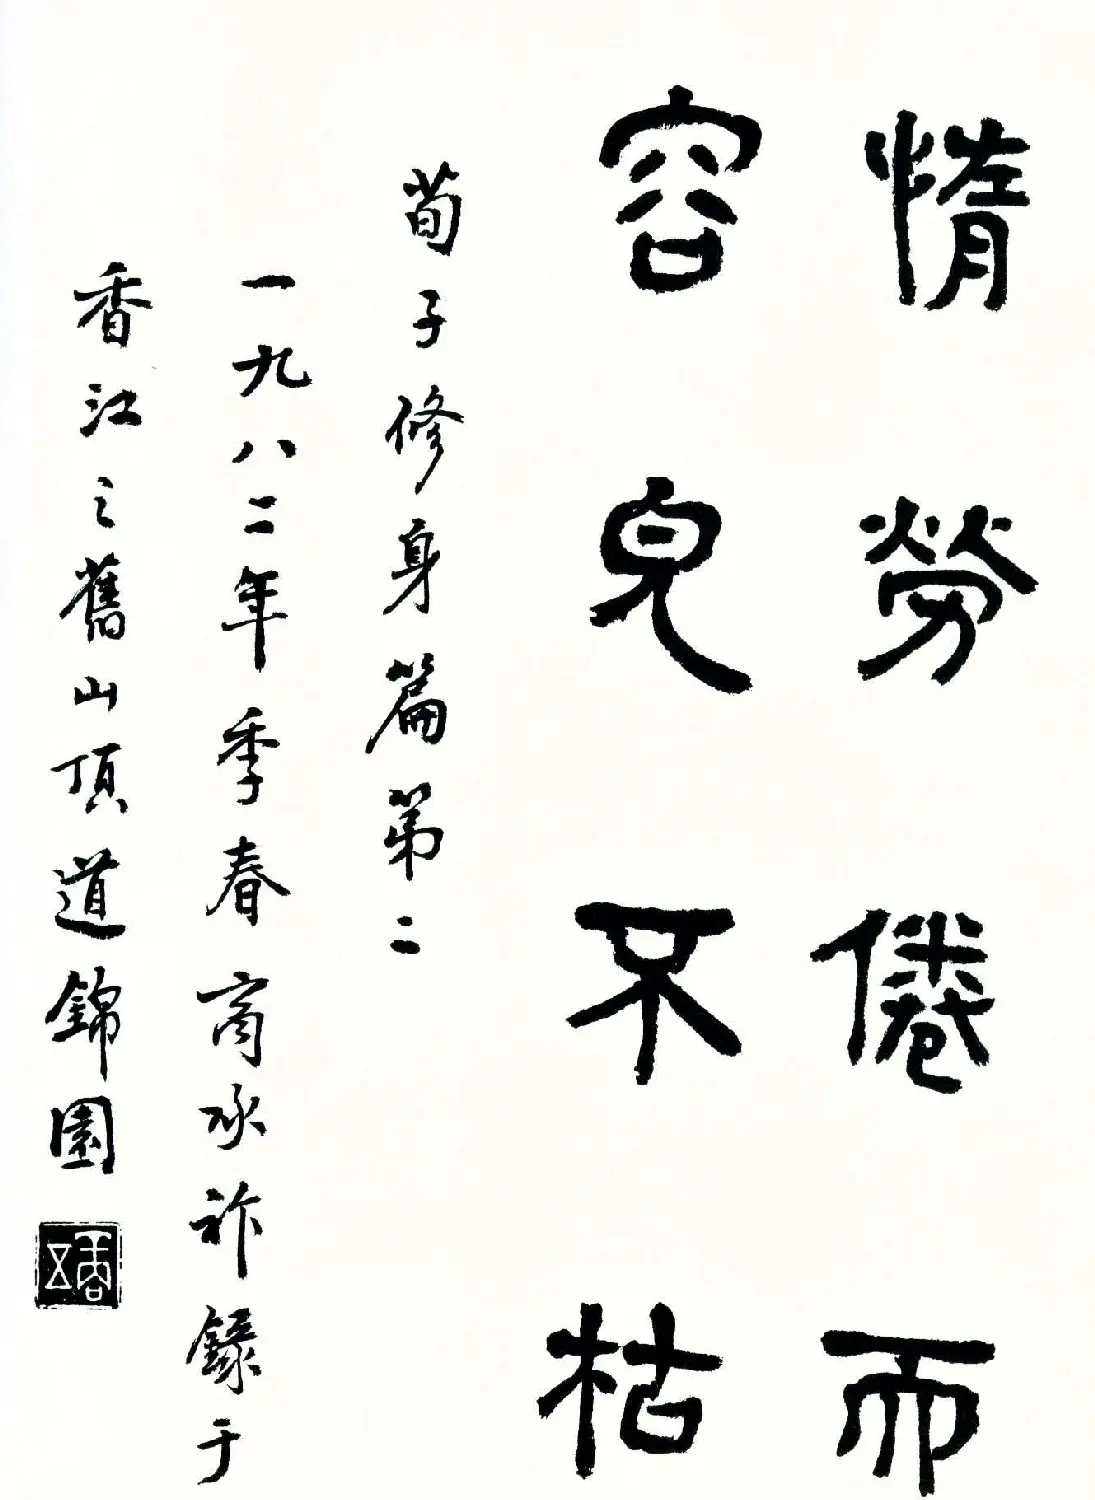 惰勞倦而
容皃不枯
荀子修身篇第二
一九八二年季春商承祚録于
香江之舊山頂道錦園